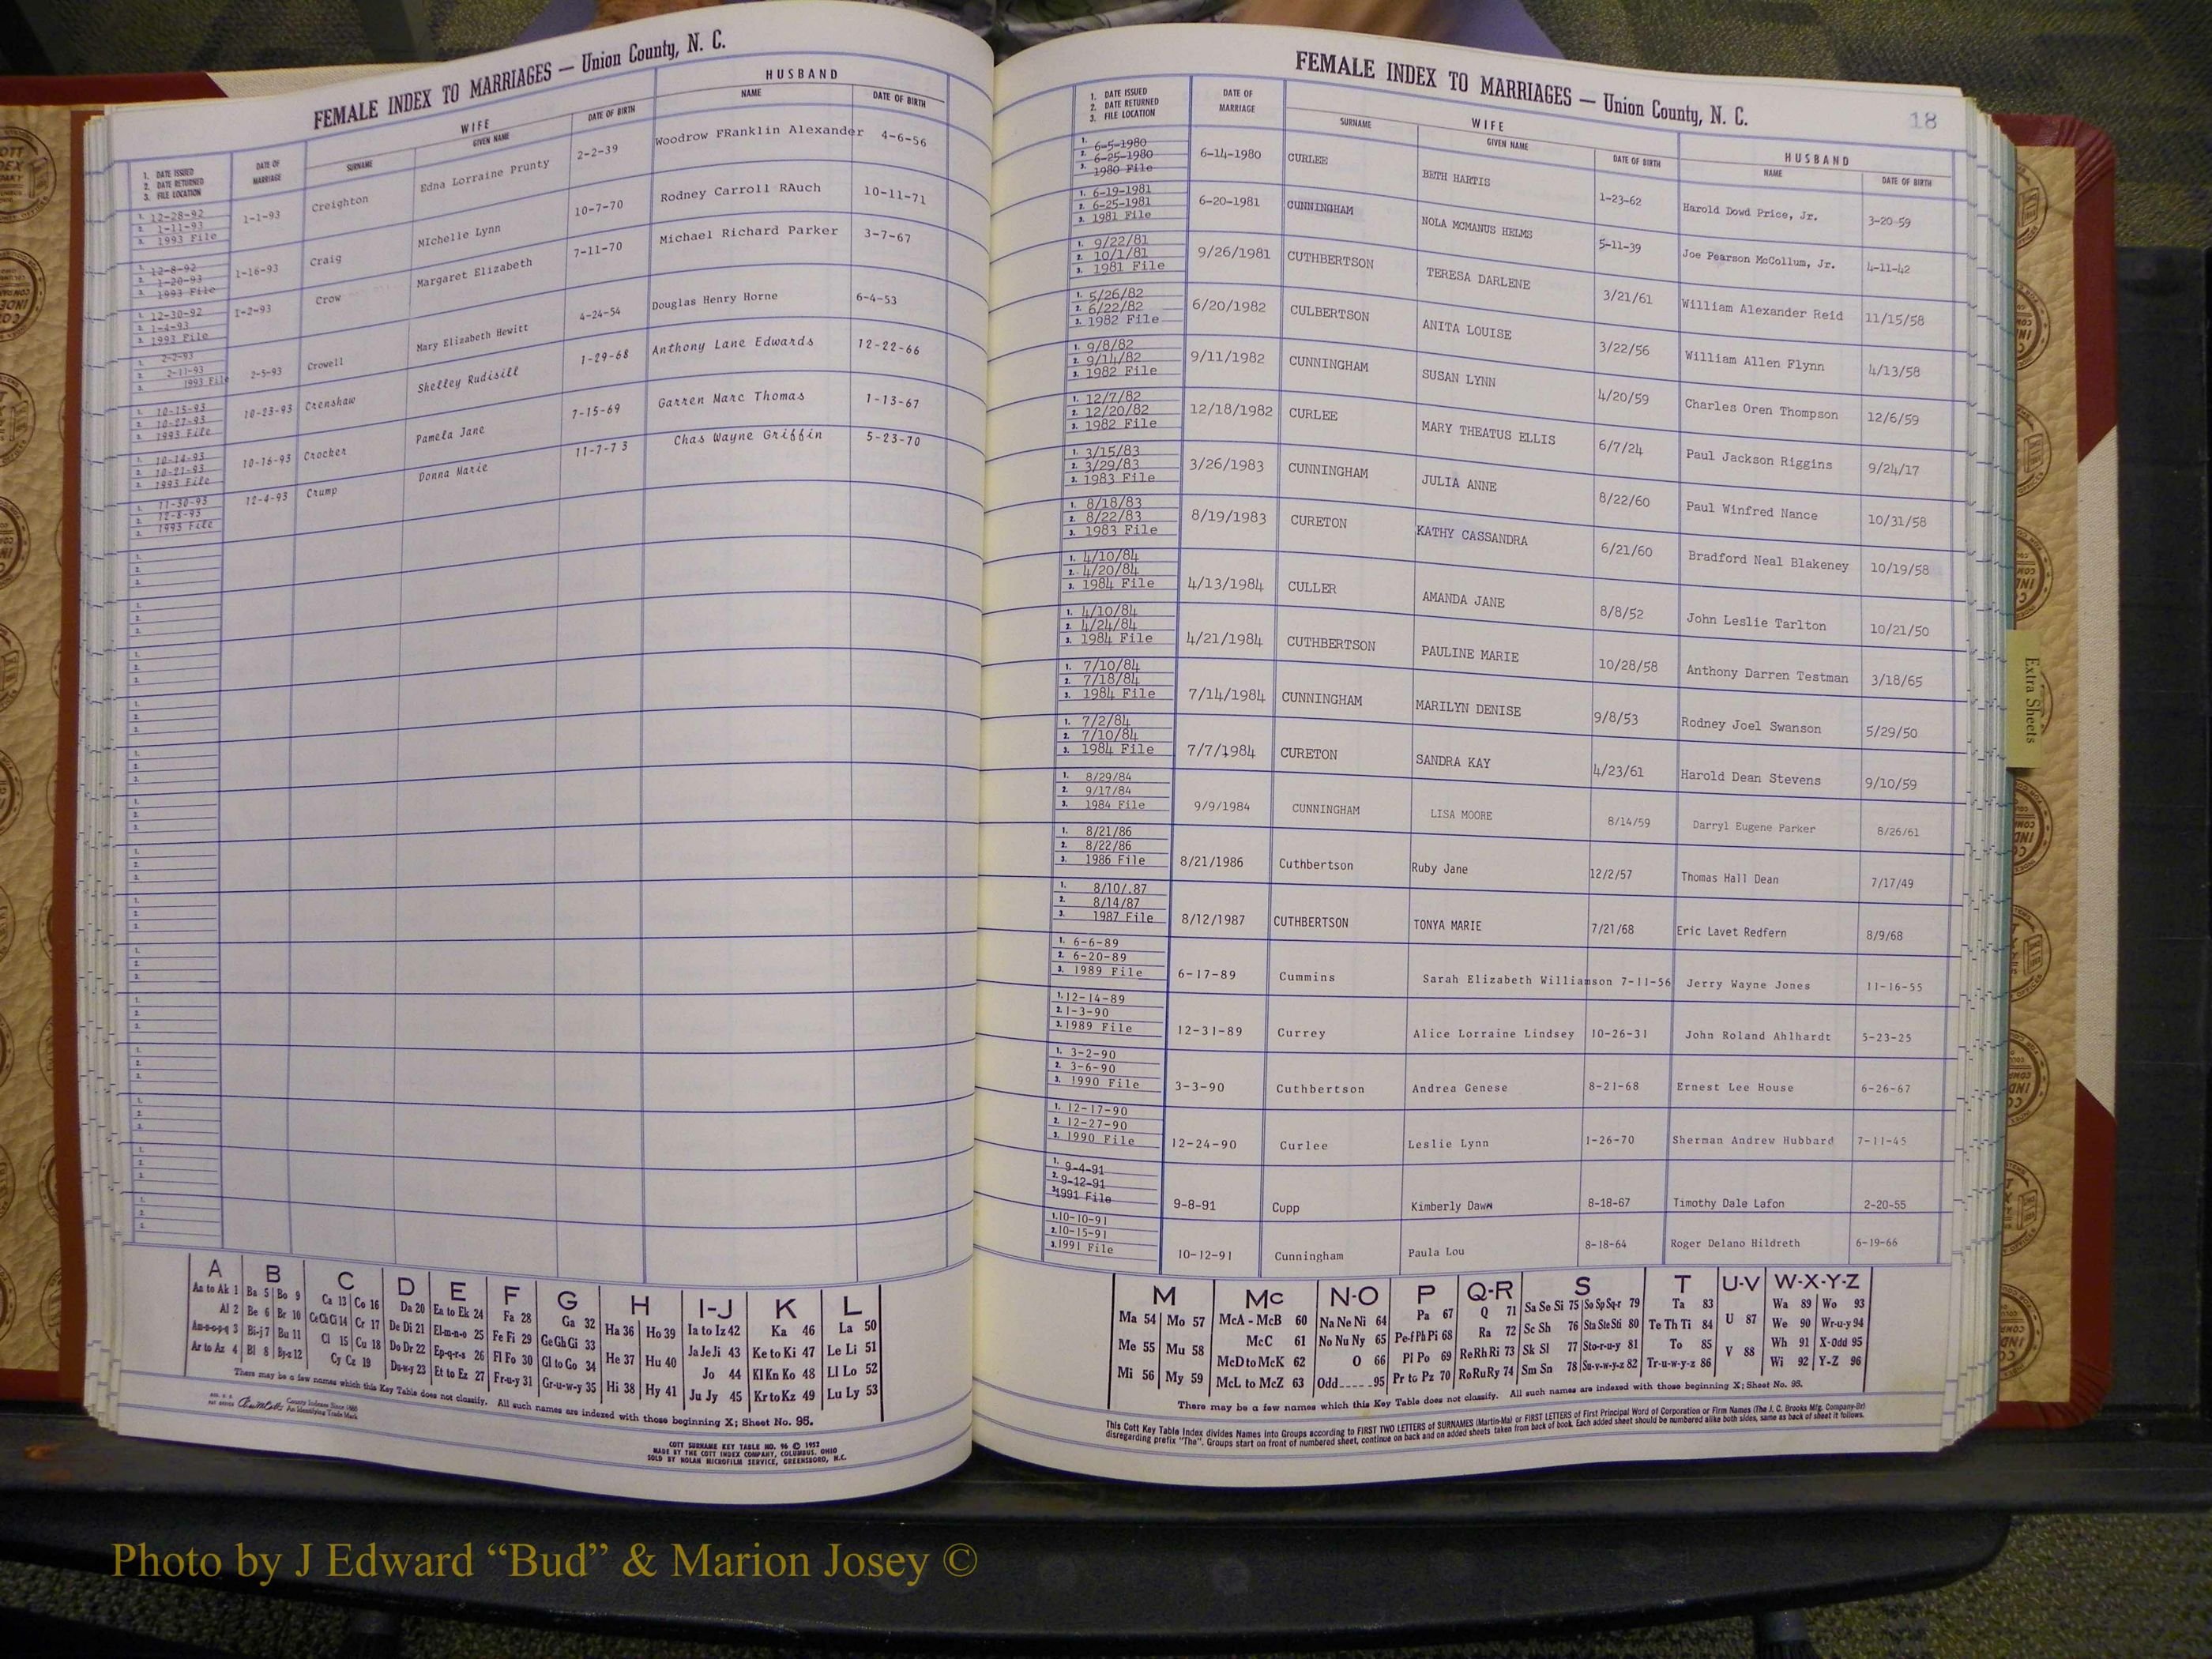 FEMALE INDEX TO MARRIAGES — Union County, N. C.
1. DATE ISSUED
2. DATE RETURNED
3. FILE LOCATION
DATE OF MARRIAGE
WIFE
SURNAME
GIVEN NAME
DATE OF BIRTH
HUSBAND
NAME
DATE OF BIRTH
1. 12-28-92
2. 1-11-93
3. 1993 File
1-1-93 Creighton Edna Lorraine Prunty 2-2-39 Woodrow FRanklin Alexander 4-6-56
1. 12-8-92
2. 1-20-93
3. 1993 File
1-16-93 Craig MIchelle Lynn 10-7-70 Rodney Carroll RAuch 10-11-71
1. 12-30-92
2. 1-4-93
3. 1993 File
1-2-93 Crow Margaret Elizabeth 7-11-70 Michael Richard Parker 3-7-67
1. 2-2-93
2. 2-11-93
3. 1993 File
2-5-93 Crowell Mary Elizabeth Hewitt 4-24-54 Douglas Henry Horne 6-4-53
1. 10-15-93
2. 10-27-93
3. 1993 File
10-23-93 Crenshaw Shelley Rudisill 1-29-68 Anthony Lane Edwards 12-22-66
1. 10-14-93
2. 10-21-93
3. 1993 File
10-16-93 Crocker Pamela Jane 7-15-69 Garren Marc Thomas 1-13-67
1. 11-30-93
2. 12-8-93
3. 1993 File
12-4-93 Crump Donna Marie 11-7-73 Chas Wayne Griffin 5-23-70
A B C D E F G H I-J K L
Aa to Ak 1 Ba 5 Bo 9 Ca 13 Co 16 Da 20 Ea to Ek 24 Fa 28 Ga 32 Ha 36 Ho 39 Ia to Iz 42 Ka 46 La 50
Al 2 Be 6 Br 10 Ce Ch Ci 14 Cr 17 De Di 21 El-m-n-o 25 Fe Fi 29 Ge Gh Gi 33 He 37 Hu 40 Ja Je Ji 43 Ke to Ki 47 Le Li 51
Am-n-o-p-q 3 Bi-j 7 Bu 11 Cl 15 Cu 18 Do Dr 22 Ep-q-r-s 26 Fl Fo 30 Gl to Go 34 Hi 38 Hy 41 Jo 44 Kl Kn Ko 48 Ll Lo 52
Ar to Az 4 Bl 8 By-z 12 Cy Cz 19 Du-w-y 23 Et to Ez 27 Fr-u-y 31 Gr-u-w-y 35 Ju Jy 45 Kr to Kz 49 Lu Ly 53
There may be a few names which this Key Table does not classify. All such names are indexed with those beginning X; Sheet No. 95.
County Indexes Since 1888
An Identifying Trade Mark
COTT SURNAME KEY TABLE NO. 96 © 1952
MADE BY THE COTT INDEX COMPANY, COLUMBUS, OHIO
SOLD BY NOLAN MICROFILM SERVICE, GREENSBORO, N.C.
FEMALE INDEX TO MARRIAGES — Union County, N. C.
18
1. DATE ISSUED
2. DATE RETURNED
3. FILE LOCATION
DATE OF MARRIAGE
WIFE
SURNAME
GIVEN NAME
DATE OF BIRTH
HUSBAND
NAME
DATE OF BIRTH
1. 6-5-1980
2. 6-25-1980
3. 1980 File
6-14-1980 CURLEE BETH HARTIS 1-23-62 Harold Dowd Price, Jr. 3-20-59
1. 6-19-1981
2. 6-25-1981
3. 1981 File
6-20-1981 CUNNINGHAM NOLA MCMANUS HELMS 5-11-39 Joe Pearson McCollum, Jr. 4-11-42
1. 9/22/81
2. 10/1/81
3. 1981 File
9/26/1981 CUTHBERTSON TERESA DARLENE 3/21/61 William Alexander Reid 11/15/58
1. 5/26/82
2. 6/22/82
3. 1982 File
6/20/1982 CULBERTSON ANITA LOUISE 3/22/56 William Allen Flynn 4/13/58
1. 9/8/82
2. 9/14/82
3. 1982 File
9/11/1982 CUNNINGHAM SUSAN LYNN 4/20/59 Charles Oren Thompson 12/6/59
1. 12/7/82
2. 12/20/82
3. 1982 File
12/18/1982 CURLEE MARY THEATUS ELLIS 6/7/24 Paul Jackson Riggins 9/24/17
1. 3/15/83
2. 3/29/83
3. 1983 File
3/26/1983 CUNNINGHAM JULIA ANNE 8/22/60 Paul Winfred Nance 10/31/58
1. 8/18/83
2. 8/22/83
3. 1983 File
8/19/1983 CURETON KATHY CASSANDRA 6/21/60 Bradford Neal Blakeney 10/19/58
1. 4/10/84
2. 4/20/84
3. 1984 File
4/13/1984 CULLER AMANDA JANE 8/8/52 John Leslie Tarlton 10/21/50
1. 4/10/84
2. 4/24/84
3. 1984 File
4/21/1984 CUTHBERTSON PAULINE MARIE 10/28/58 Anthony Darren Testman 3/18/65
1. 7/10/84
2. 7/18/84
3. 1984 File
7/14/1984 CUNNINGHAM MARILYN DENISE 9/8/53 Rodney Joel Swanson 5/29/50
1. 7/2/84
2. 7/10/84
3. 1984 File
7/7/1984 CURETON SANDRA KAY 4/23/61 Harold Dean Stevens 9/10/59
1. 8/29/84
2. 9/17/84
3. 1984 File
9/9/1984 CUNNINGHAM LISA MOORE 8/14/59 Darryl Eugene Parker 8/26/61
1. 8/21/86
2. 8/22/86
3. 1986 File
8/21/1986 Cuthbertson Ruby Jane 12/2/57 Thomas Hall Dean 7/17/49
1. 8/10/.87
2. 8/14/87
3. 1987 File
8/12/1987 CUTHBERTSON TONYA MARIE 7/21/68 Eric Lavet Redfern 8/9/68
1. 6-6-89
2. 6-20-89
3. 1989 File
6-17-89 Cummins Sarah Elizabeth Williamson 7-11-56 Jerry Wayne Jones 11-16-55
1. 12-14-89
2. 1-3-90
3. 1989 File
12-31-89 Currey Alice Lorraine Lindsey 10-26-31 John Roland Ahlhardt 5-23-25
1. 3-2-90
2. 3-6-90
3. 1990 File
3-3-90 Cuthbertson Andrea Genese 8-21-68 Ernest Lee House 6-26-67
1. 12-17-90
2. 12-27-90
3. 1990 File
12-24-90 Curlee Leslie Lynn 1-26-70 Sherman Andrew Hubbard 7-11-45
1. 9-4-91
2. 9-12-91
3. 1991 File
9-8-91 Cupp Kimberly Dawn 8-18-67 Timothy Dale Lafon 2-20-55
1. 10-10-91
2. 10-15-91
3. 1991 File
10-12-91 Cunningham Paula Lou 8-18-64 Roger Delano Hildreth 6-19-66
M Mc N-O P Q-R S T U-V W-X-Y-Z
Ma 54 Mo 57 McA - McB 60 Na Ne Ni 64 Pa 67 Q 71 Sa Se Si 75 So Sp Sq-r 79 Ta 83 U 87 Wa 89 Wo 93
Me 55 Mu 58 McC 61 No Nu Ny 65 Pe-f Ph Pi 68 Ra 72 Sc Sh 76 Sta Ste Sti 80 Te Th Ti 84 V 88 We 90 Wr-u-y 94
Mi 56 My 59 McD to McK 62 O 66 Pl Po 69 Re Rh Ri 73 Sk Sl 77 Sto-r-u-y 81 To 85 Wh 91 X-Odd 95
McL to McZ 63 Odd 95 Pr to Pz 70 Ro Ru Ry 74 Sm Sn 78 Su-v-w-y-z 82 Tr-u-w-y-z 86 Wi 92 Y-Z 96
There may be a few names which this Key Table does not classify. All such names are indexed with those beginning X; Sheet No. 95.
This Cott Key Table Index divides Names into Groups according to FIRST TWO LETTERS of SURNAMES (Martin-Ma) or FIRST LETTERS of First Principal Word of Corporation or Firm Names (The J. C. Brooks Mfg. Company-Br)
disregarding prefix "The". Groups start on front of numbered sheet, continue on back and on added sheets taken from back of book. Each added sheet should be numbered alike both sides, same as back of sheet it follows.
Extra Sheets
Photo by J Edward “Bud” & Marion Josey ©